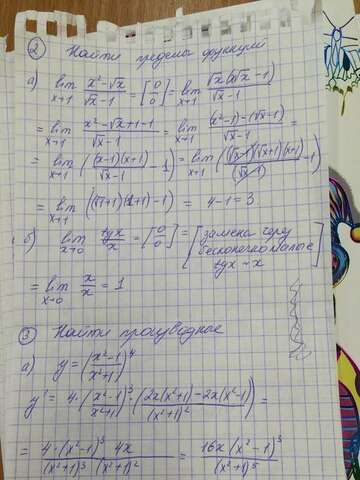 ② Найти пределы функций
а) lim x→1 (x² − √x)/(√x − 1) = [0/0] = lim x→1 √x(x√x − 1)/(√x − 1)
= lim x→1 (x² − √x + 1 − 1)/(√x − 1) = lim x→1 ((x² − 1) − (√x − 1))/(√x − 1) =
= lim x→1 ((x−1)(x+1)/(√x − 1) − 1) = lim x→1 ((√x − 1)(√x + 1)(x+1)/(√x − 1) − 1)
= lim x→1 ((√1 + 1)(1+1) − 1) = 4 − 1 = 3
б) lim x→0 tgx/x = [0/0] = [замены черу бесконечно малые tgx ~ x]
= lim x→0 x/x = 1
③ Найти производное
а) y = ((x² − 1)/(x² + 1))⁴
y' = 4 · ((x² − 1)/(x² + 1))³ · (2x(x² + 1) − 2x(x² − 1))/(x² + 1)² =
= 4 · (x² − 1)³/(x² + 1)³ · 4x/(x² + 1)² = 16x(x² − 1)³/(x² + 1)⁵